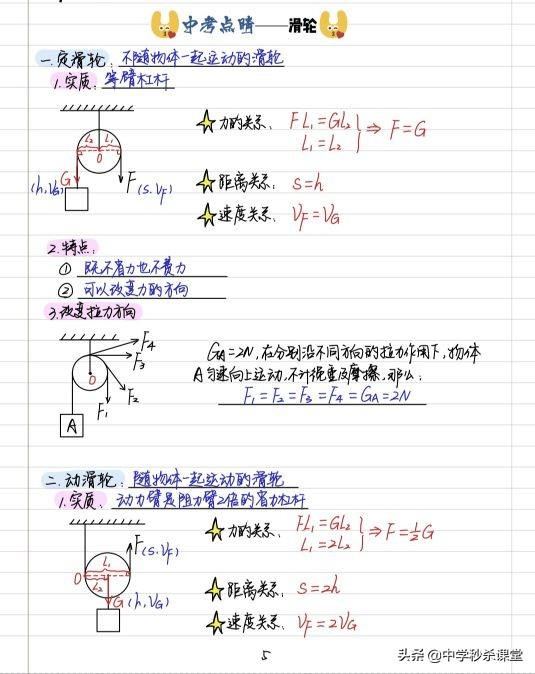 中考点睛——滑轮
一.定滑轮：不随物体一起运动的滑轮
1.实质：等臂杠杆
L₂ L₁
O
G
F
(h,VG)
(s.VF)
力的关系、FL₁=GL₂
L₁=L₂
⇒ F=G
距离关系：s=h
速度关系、VF=VG
2.特点：
① 既不省力也不费力
② 可以改变力的方向
3.改变拉力方向
F₄
F₃
O
F₂
F₁
A
GA=2N,在分别沿不同方向的拉力作用下,物体
A匀速向上运动,不计绳重及摩擦.那么：
F₁=F₂=F₃=F₄=GA=2N
二.动滑轮：随物体一起运动的滑轮
1.实质、动力臂是阻力臂2倍的省力杠杆
F(s.VF)
L₁
O
L₂
G(h,VG)
力的关系、FL₁=GL₂
L₁=2L₂
⇒ F=½G
距离关系：s=2h
速度关系、VF=2VG
5
头条 @中学秒杀课堂